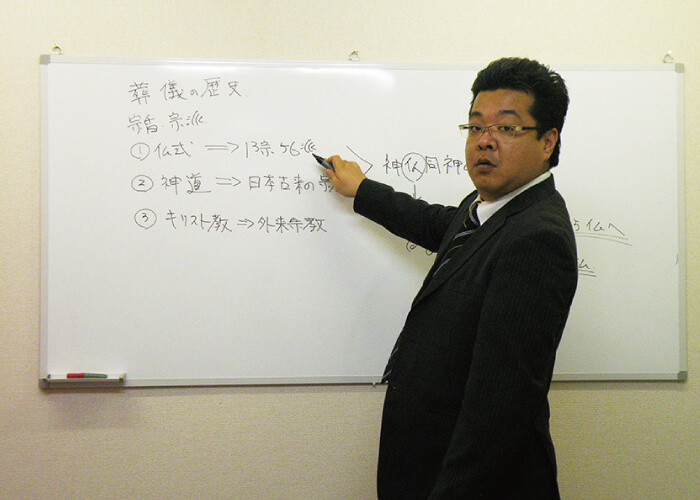 葬儀の歴史
宗旨宗派
①仏式 ⇒ 13宗56派
②神道 ⇒ 日本古来の宗
③キリスト教 ⇒ 外来宗教
神仏同神
仏へ
仏